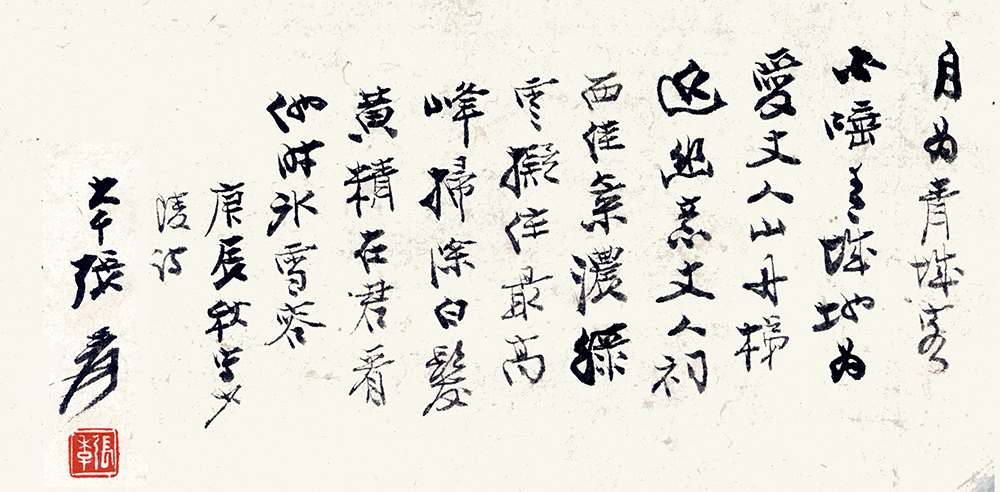 自为青城客
不唾青城地为
愛丈人山丹梯
近幽意丈人祠
西佳氣濃綠
雲擬住最高
峰掃除白髮
黃精在君看
他时冰雪容
庚辰秋写少
陵诗
大千張爰
張季